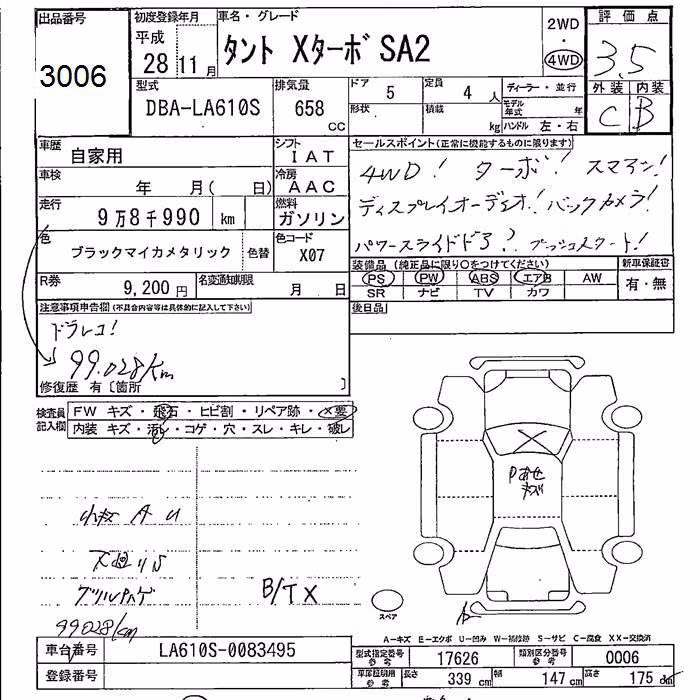 出品番号
3006
初度登録年月
平成
28 11 月
車名・グレード
タント Xターボ SA2
2WD
・
4WD
評価点
3.5
外装 内装
C B
型式
DBA-LA610S
排気量
658
CC
ドア 5
定員 4 人
形状
積載 kg
ディーラー・並行
モデル年式 年
ハンドル 左・右
車歴 自家用
シフト IAT
車検 年 月( 日)
冷房 AAC
走行 9万8千990 km
燃料 ガソリン
色 ブラックマイカメタリック 色替
色コード X07
R券 9,200 円
名変通知期限 月 日
セールスポイント(正常に機能するものに限ります)
4WD! ターボ! スマアシ!
ディスプレイオーディオ! バックカメラ!
パワースライドドア! プッシュスタート!
装備品 (純正品に限り○をつけてください)
PS PW ABS エアB AW
SR ナビ TV カワ
新車保証書
有・無
後日品
注意事項申告欄(不具合内容等は具体的に記入して下さい)
ドラレコ!
99.028km
修復歴 有〔箇所 〕
検査員記入欄
FW キズ・飛石・ヒビ割・リペア跡・X要
内装 キズ・汚れ・コゲ・穴・スレ・キレ・破レ
小キズ A U
B/TX
99028km
キズ
スペア
A-キズ E-エクボ U-凹み W-補修跡 S-サビ C-腐食 XX-交換済
車台番号 LA610S-0083495
登録番号
型式指定番号 参考 17626
類別区分番号 参考 0006
車庫証明用 参考 長さ 339 cm 幅 147 cm 高さ 175 cm